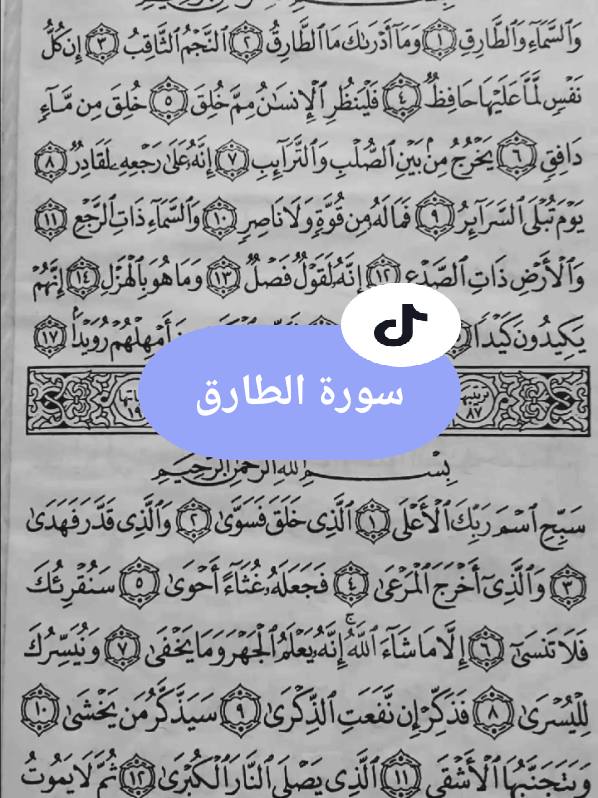 وَٱلسَّمَآءِ وَٱلطَّارِقِ ١ وَمَآ أَدْرَىٰكَ مَا ٱلطَّارِقُ ٢ ٱلنَّجْمُ ٱلثَّاقِبُ ٣ إِن كُلُّ
نَفْسٍ لَّمَّا عَلَيْهَا حَافِظٌ ٤ فَلْيَنظُرِ ٱلْإِنسَٰنُ مِمَّ خُلِقَ ٥ خُلِقَ مِن مَّآءٍ
دَافِقٍ ٦ يَخْرُجُ مِنۢ بَيْنِ ٱلصُّلْبِ وَٱلتَّرَآئِبِ ٧ إِنَّهُۥ عَلَىٰ رَجْعِهِۦ لَقَادِرٌ ٨
يَوْمَ تُبْلَى ٱلسَّرَآئِرُ ٩ فَمَا لَهُۥ مِن قُوَّةٍ وَلَا نَاصِرٍ ١٠ وَٱلسَّمَآءِ ذَاتِ ٱلرَّجْعِ ١١
وَٱلْأَرْضِ ذَاتِ ٱلصَّدْعِ ١٢ إِنَّهُۥ لَقَوْلٌ فَصْلٌ ١٣ وَمَا هُوَ بِٱلْهَزْلِ ١٤ إِنَّهُمْ
يَكِيدُونَ كَيْدًا أَمْهِلْهُمْ رُوَيْدًۢا ١٧
سورة الطارق
٨٧
بِسْمِ ٱللَّهِ ٱلرَّحْمَٰنِ ٱلرَّحِيمِ
سَبِّحِ ٱسْمَ رَبِّكَ ٱلْأَعْلَى ١ ٱلَّذِى خَلَقَ فَسَوَّىٰ ٢ وَٱلَّذِى قَدَّرَ فَهَدَىٰ
٣ وَٱلَّذِىٓ أَخْرَجَ ٱلْمَرْعَىٰ ٤ فَجَعَلَهُۥ غُثَآءً أَحْوَىٰ ٥ سَنُقْرِئُكَ
فَلَا تَنسَىٰٓ ٦ إِلَّا مَا شَآءَ ٱللَّهُ ۚ إِنَّهُۥ يَعْلَمُ ٱلْجَهْرَ وَمَا يَخْفَىٰ ٧ وَنُيَسِّرُكَ
لِلْيُسْرَىٰ ٨ فَذَكِّرْ إِن نَّفَعَتِ ٱلذِّكْرَىٰ ٩ سَيَذَّكَّرُ مَن يَخْشَىٰ ١٠
وَيَتَجَنَّبُهَا ٱلْأَشْقَى ١١ ٱلَّذِى يَصْلَى ٱلنَّارَ ٱلْكُبْرَىٰ ١٢ ثُمَّ لَا يَمُوتُ